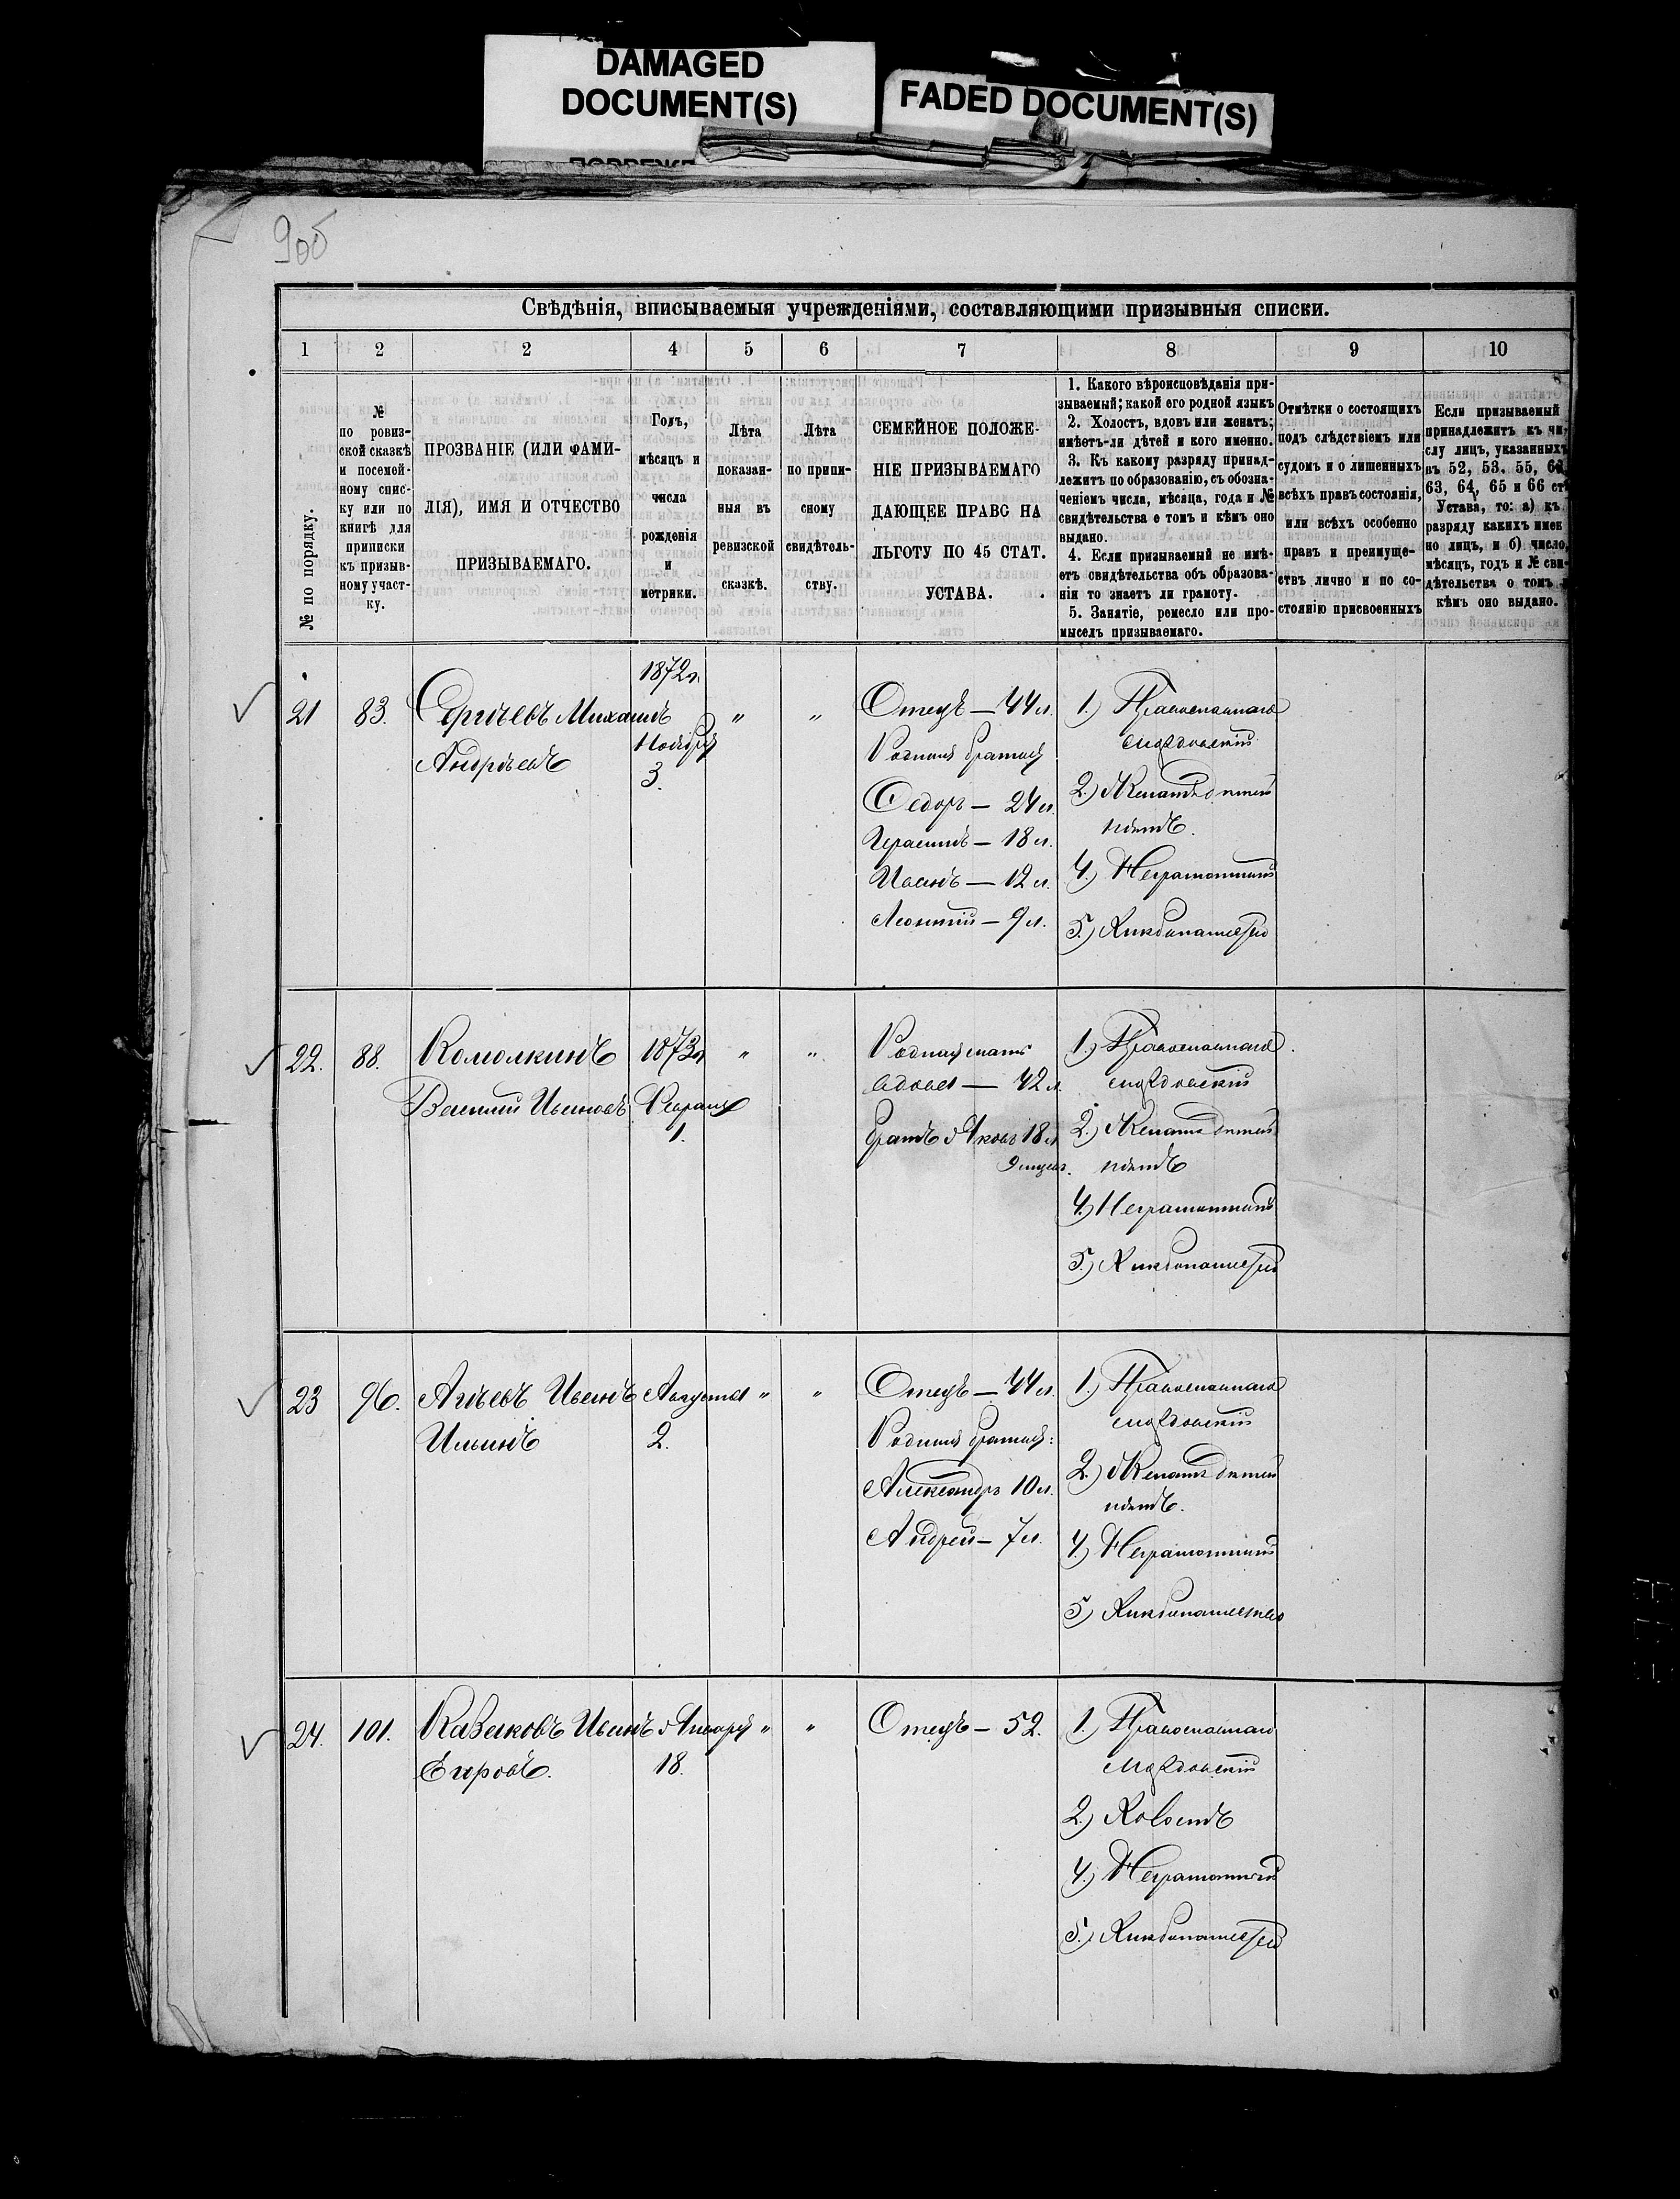 DAMAGED
DOCUMENT(S)
FADED DOCUMENT(S)
90об
Свѣдѣнія, вписываемыя учрежденіями, составляющими призывныя списки.
1 2 2 4 5 6 7 8 9 10
№ по порядку.
№
по ровиз-
ской сказкѣ
и посемей-
ному спис-
ку или по
книгѣ для
приписки
къ призыв-
ному участ-
ку.
ПРОЗВАНІЕ (ИЛИ ФАМИ-
ЛІЯ), ИМЯ И ОТЧЕСТВО
ПРИЗЫВАЕМАГО.
Годъ,
мѣсяцъ и
числа
рожденія
и
метрики.
Лѣта
показан-
ныя въ
ревизской
сказкѣ.
Лѣта
по припи-
сному
свидѣтель-
ству.
СЕМЕЙНОЕ ПОЛОЖЕ-
НІЕ ПРИЗЫВАЕМАГО
ДАЮЩЕЕ ПРАВО НА
ЛЬГОТУ ПО 45 СТАТ.
УСТАВА.
1. Какого вѣроисповѣданія при-
зываемый; какой его родной языкъ
2. Холостъ, вдовъ или женатъ;
имѣетъ-ли дѣтей и кого именно.
3. Къ какому разряду принад-
лежитъ по образованію, съ обозна-
ченіемъ числа, мѣсяца, года и №
свидѣтельства о томъ и кѣмъ оно
выдано.
4. Если призываемый не имѣ-
етъ свидѣтельства объ образова-
ніи то знаетъ ли грамоту.
5. Занятіе, ремесло или про-
мыселъ призываемаго.
Отмѣтки о состоящихъ
подъ слѣдствіемъ или
судомъ и о лишенныхъ
всѣхъ правъ состоянія,
или всѣхъ особенно
правъ и преимуще-
ствъ лично и по со-
стоянію присвоенныхъ
Если призываемый
принадлежитъ къ чи-
слу лицъ, указанныхъ
въ 52, 53. 55, 62,
63, 64, 65 и 66 ст.
Устава, то: а) къ
разряду какихъ имен
но лицъ, и б) число,
мѣсяцъ, годъ и № сви-
дѣтельства о томъ и
кѣмъ оно выдано.
21 83. Сергѣевъ Михаилъ
Андрѣевъ
1872 г.
Ноября
3.
" "
Отецъ — 44 л.
Родныя братья
Ѳедоръ — 24 л.
Герасимъ — 18 л.
Иванъ — 12 л.
Леонтій — 9 л.
1.) Православнаго
мордовскій
2.) Женатъ дѣтей
нѣтъ.
4.) Неграмотный
5.) Хлѣбопашество
22. 88. Комолкинъ
Василій Ивановъ
1873 г
Февраля
1.
" "
Родная мать
вдова — 42 л.
братъ Яковъ 18 л
1.) Православнаго.
мордовскій
2.) Женатъ дѣтей
нѣтъ
4.) Неграмотный
5.) Хлѣбопашество
23 96. Агѣевъ Иванъ
Ильинъ
Августа
2.
" "
Отецъ — 44 л.
Родныя братья:
Александръ 10 л.
Андрей — 7 л.
1.) Православнаго
мордовскій
2.) Женатъ дѣтей
нѣтъ.
4.) Неграмотный
5) Хлѣбопашество
24. 101. Казаковъ Иванъ
Егоровъ.
Января
18.
" "
Отецъ — 52.
1.) Православнаго
мордовскій
2.) Холостъ
4.) Неграмотный
5.) Хлѣбопашество